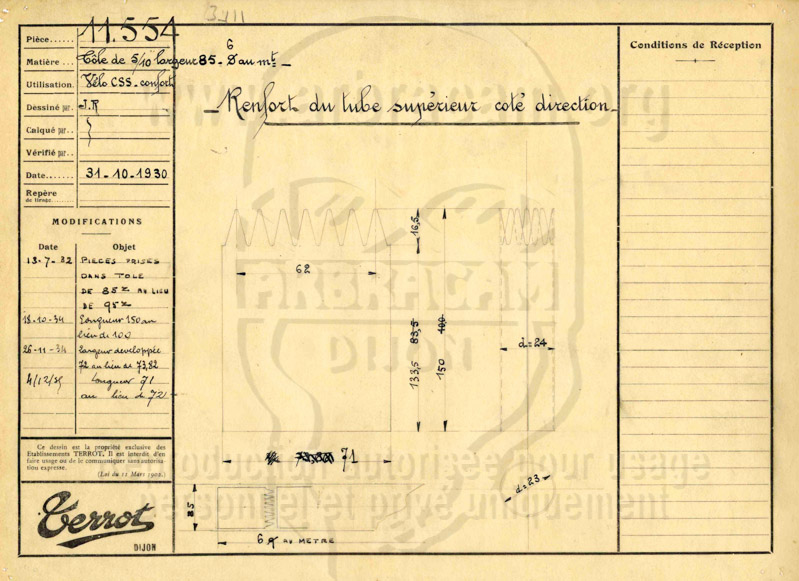 Pièce...... 11.554
6
Matière ... Tôle de 5/10 largeur 85 - 5 au mt -
Utilisation. Vélo CSS - confort
Dessiné par. J.R
Calqué par..
Vérifié par..
Date....... 31-10-1930
Repère
de tirage.......
MODIFICATIONS
Date Objet
13-7-32 PIECES PRISES
DANS TOLE
DE 85% AU LIEU
DE 95%
18-10-34 Longueur 150 au
lieu de 100
26-11-34 Largeur développée
72 au lieu de 73,82
4/12/35 Longueur 71
au lieu de 72
Ce dessin est la propriété exclusive des
Etablissements TERROT. Il est interdit d'en
faire usage ou de le communiquer sans autorisa-
tion expresse.
(Loi du 11 Mars 1902.)
Terrot
DIJON
- Renfort du tube supérieur coté direction -
62
16,5
83,5
133,5
100
150
d=24
71
d=23
85
6 AU METRE
Conditions de Réception
www.arbracam.org
ARBRACAM
DIJON
Reproduction autorisée pour usage
personnel et privé uniquement